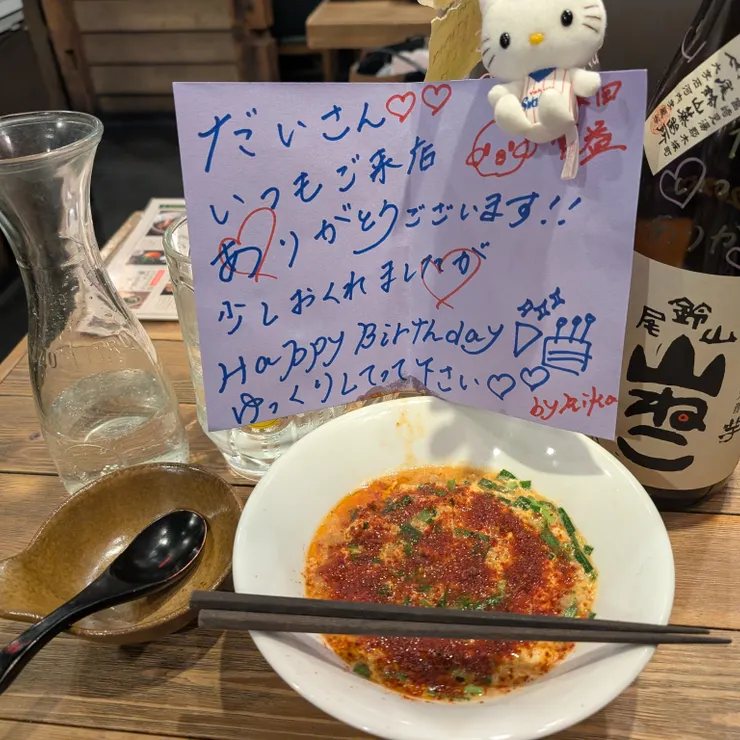 だいさん♡♡
いつもご来店
ありがとうございます!!
少しおくれましたが
Happy Birthday
ゆっくりしてって下さい♡♡
by
田
益
尾鈴山
山ねこ
尾鈴山蒸留所